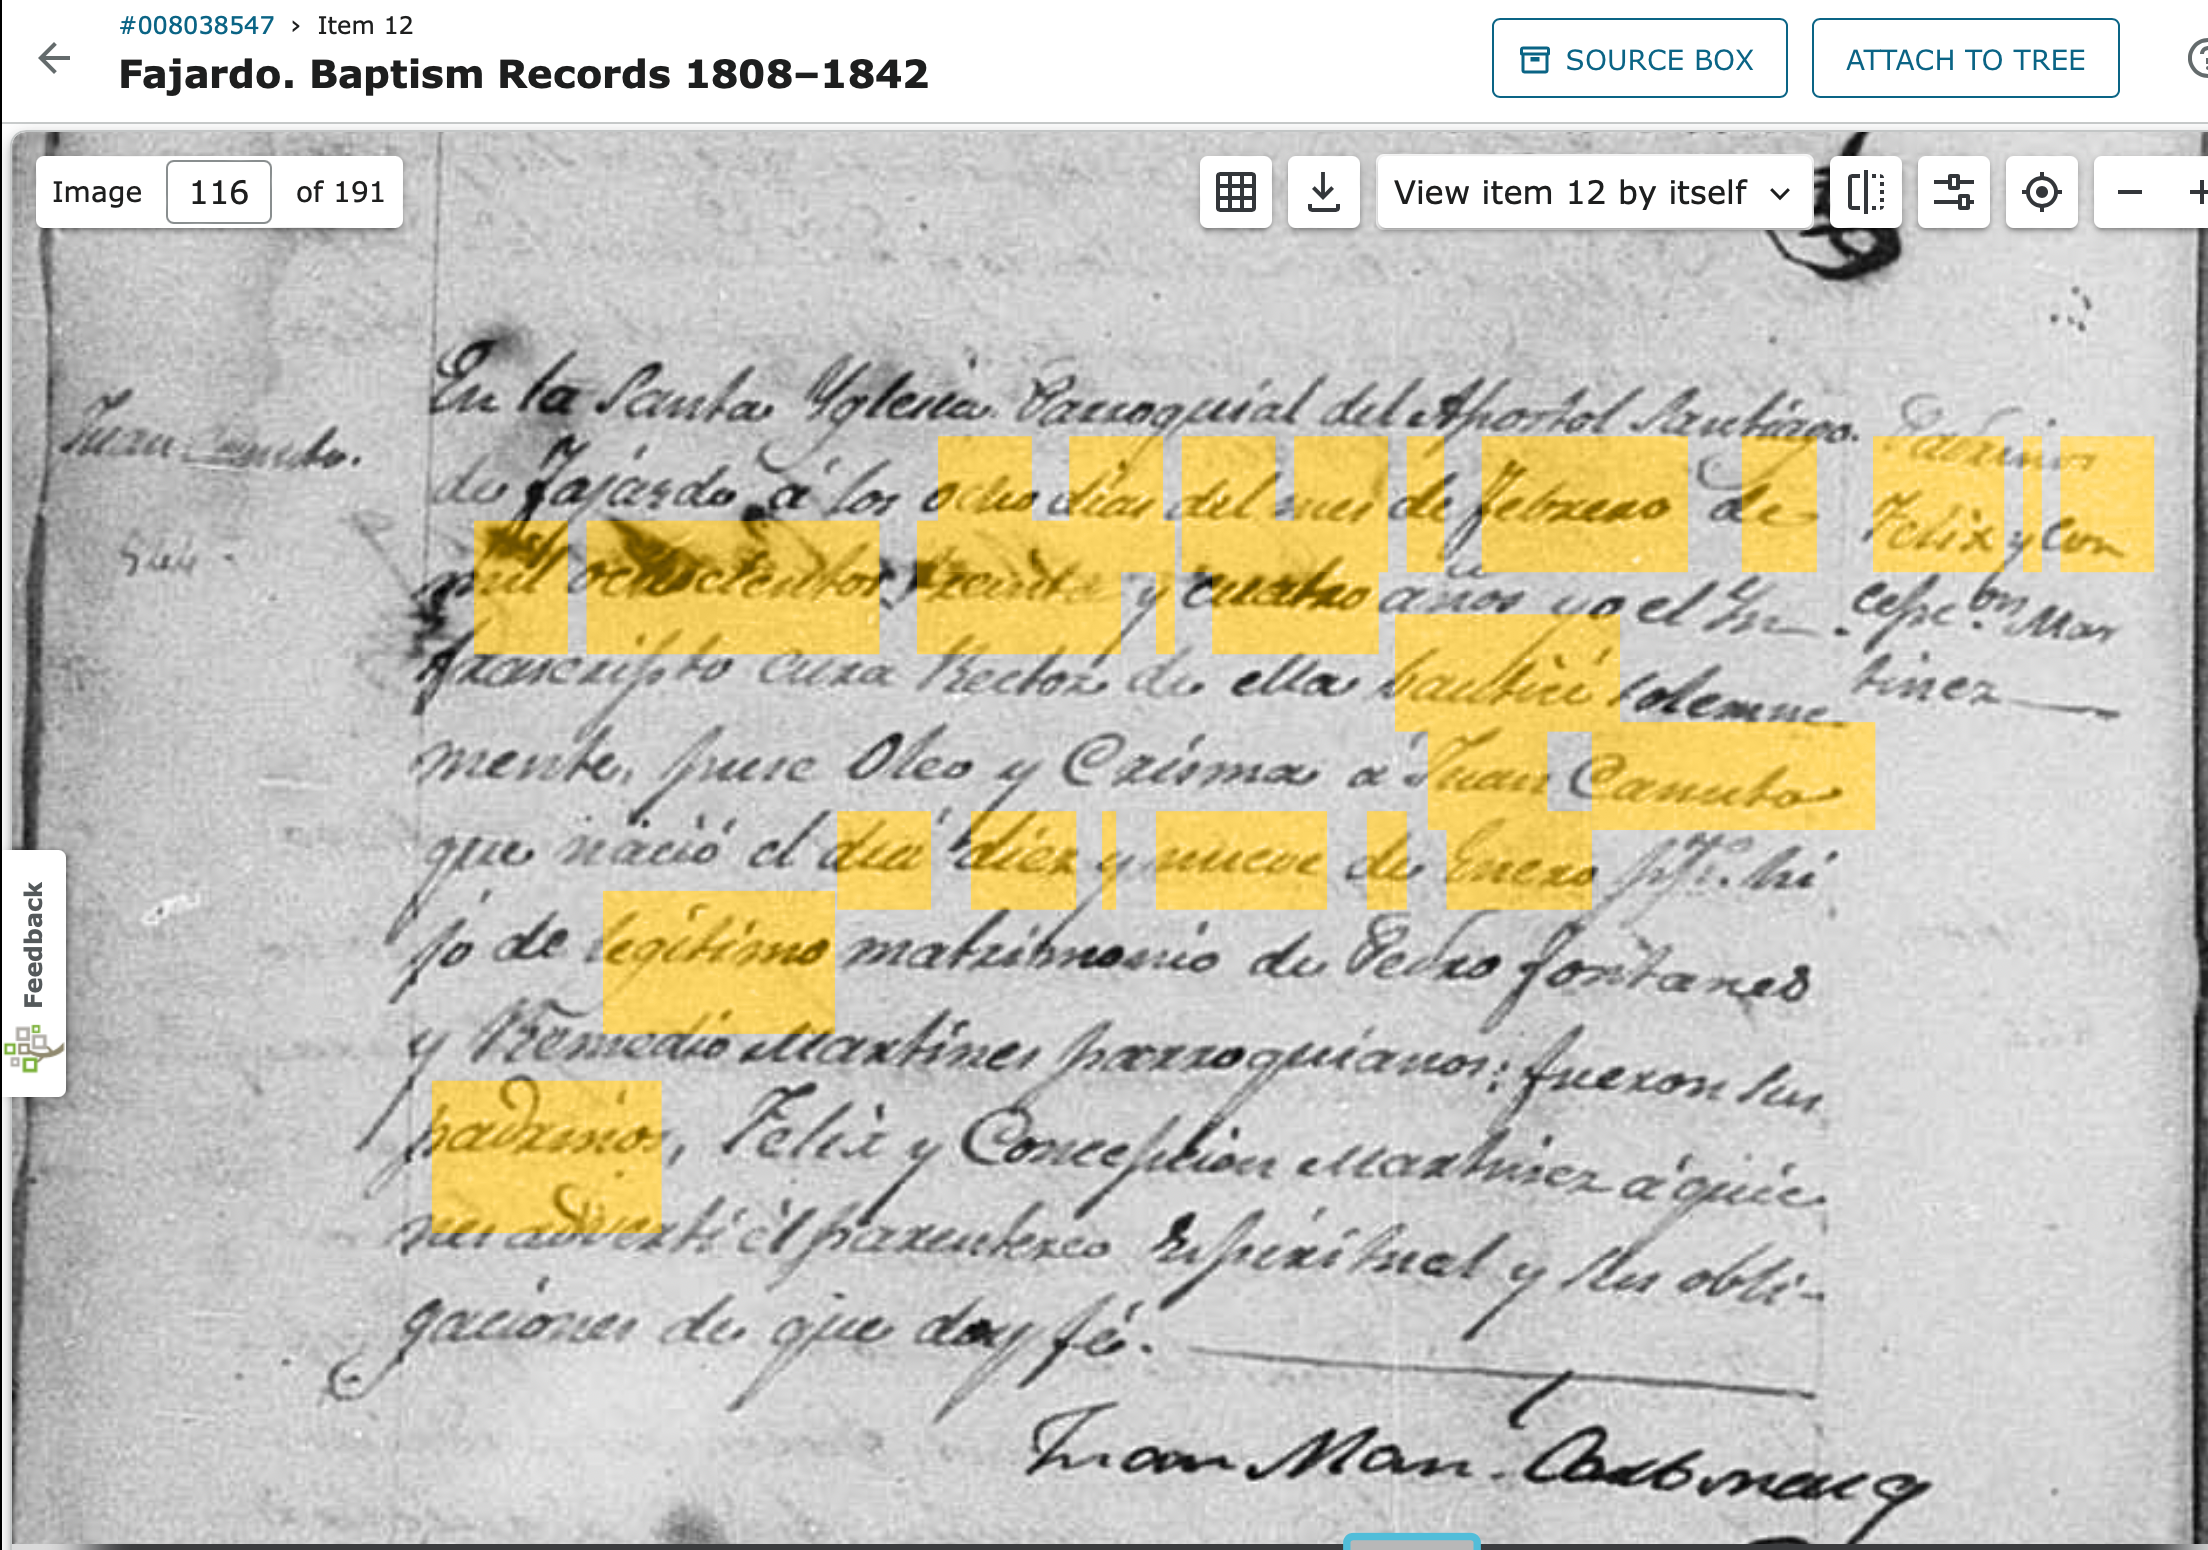 #008038547 › Item 12
Fajardo. Baptism Records 1808–1842
SOURCE BOX
ATTACH TO TREE
Image 116 of 191
View item 12 by itself
Feedback
Juan Canuto.
En la Santa Yglesia Parroquial del Apostol Santiago.
de Fajardo á los ocho dias del mes de febrero de
mil ochocientos treinta y cuatro años yo el In
frascripto Cura Rector de ella bauticé solemne
mente, puse Oleo y Crisma a Juan Canuto
que nació el dia diez y nueve de Enero ppº. hi
jo de legitimo matrimonio de Pedro fontanes
y Remedio Martines parroquianos: fueron sus
padrinos, Felix y Concepcion Martinez á quie
nes advertí el parentezco Espiritual y sus obli-
gaciones de que doy fé.
Padrinos
Felix y Con
cepc.on Mar
tinez
Juan Man.